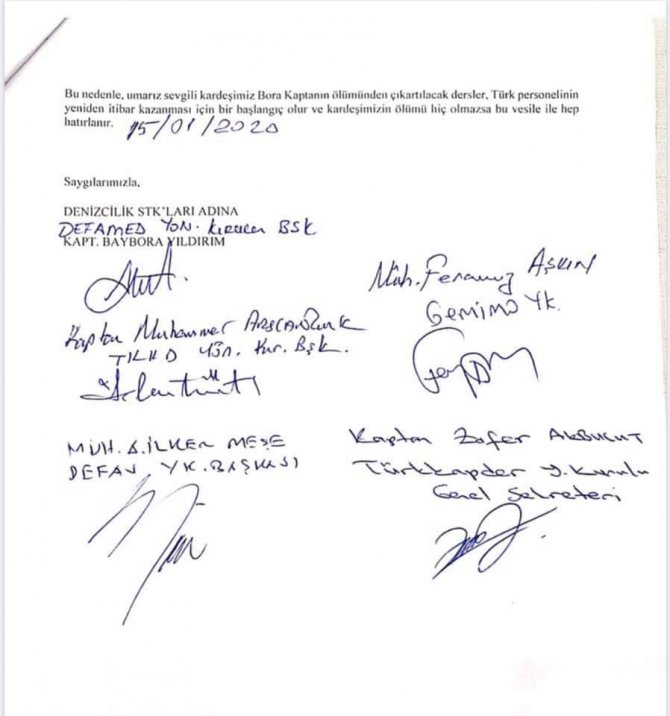 Bu nedenle, umarız sevgili kardeşimiz Bora Kaptanın ölümünden çıkartılacak dersler, Türk personelinin
yeniden itibar kazanması için bir başlangıç olur ve kardeşimizin ölümü hiç olmazsa bu vesile ile hep
hatırlanır. 15/01/2020
Saygılarımızla,
DENİZCİLİK STK'LARI ADINA
DEFAMED YÖN. BŞK
KAPT. BAYBORA YILDIRIM
Müh. Feramuz AŞKIN
GEMİMO YK.
Kaptan Muhammer
YÖN. Kur. Bşk.
MÜH. A. İLKER MEŞE
YK. BAŞKANI
Kaptan Zafer AKBULUT
Türkkapder Y. Kurulu
Genel Sekreteri